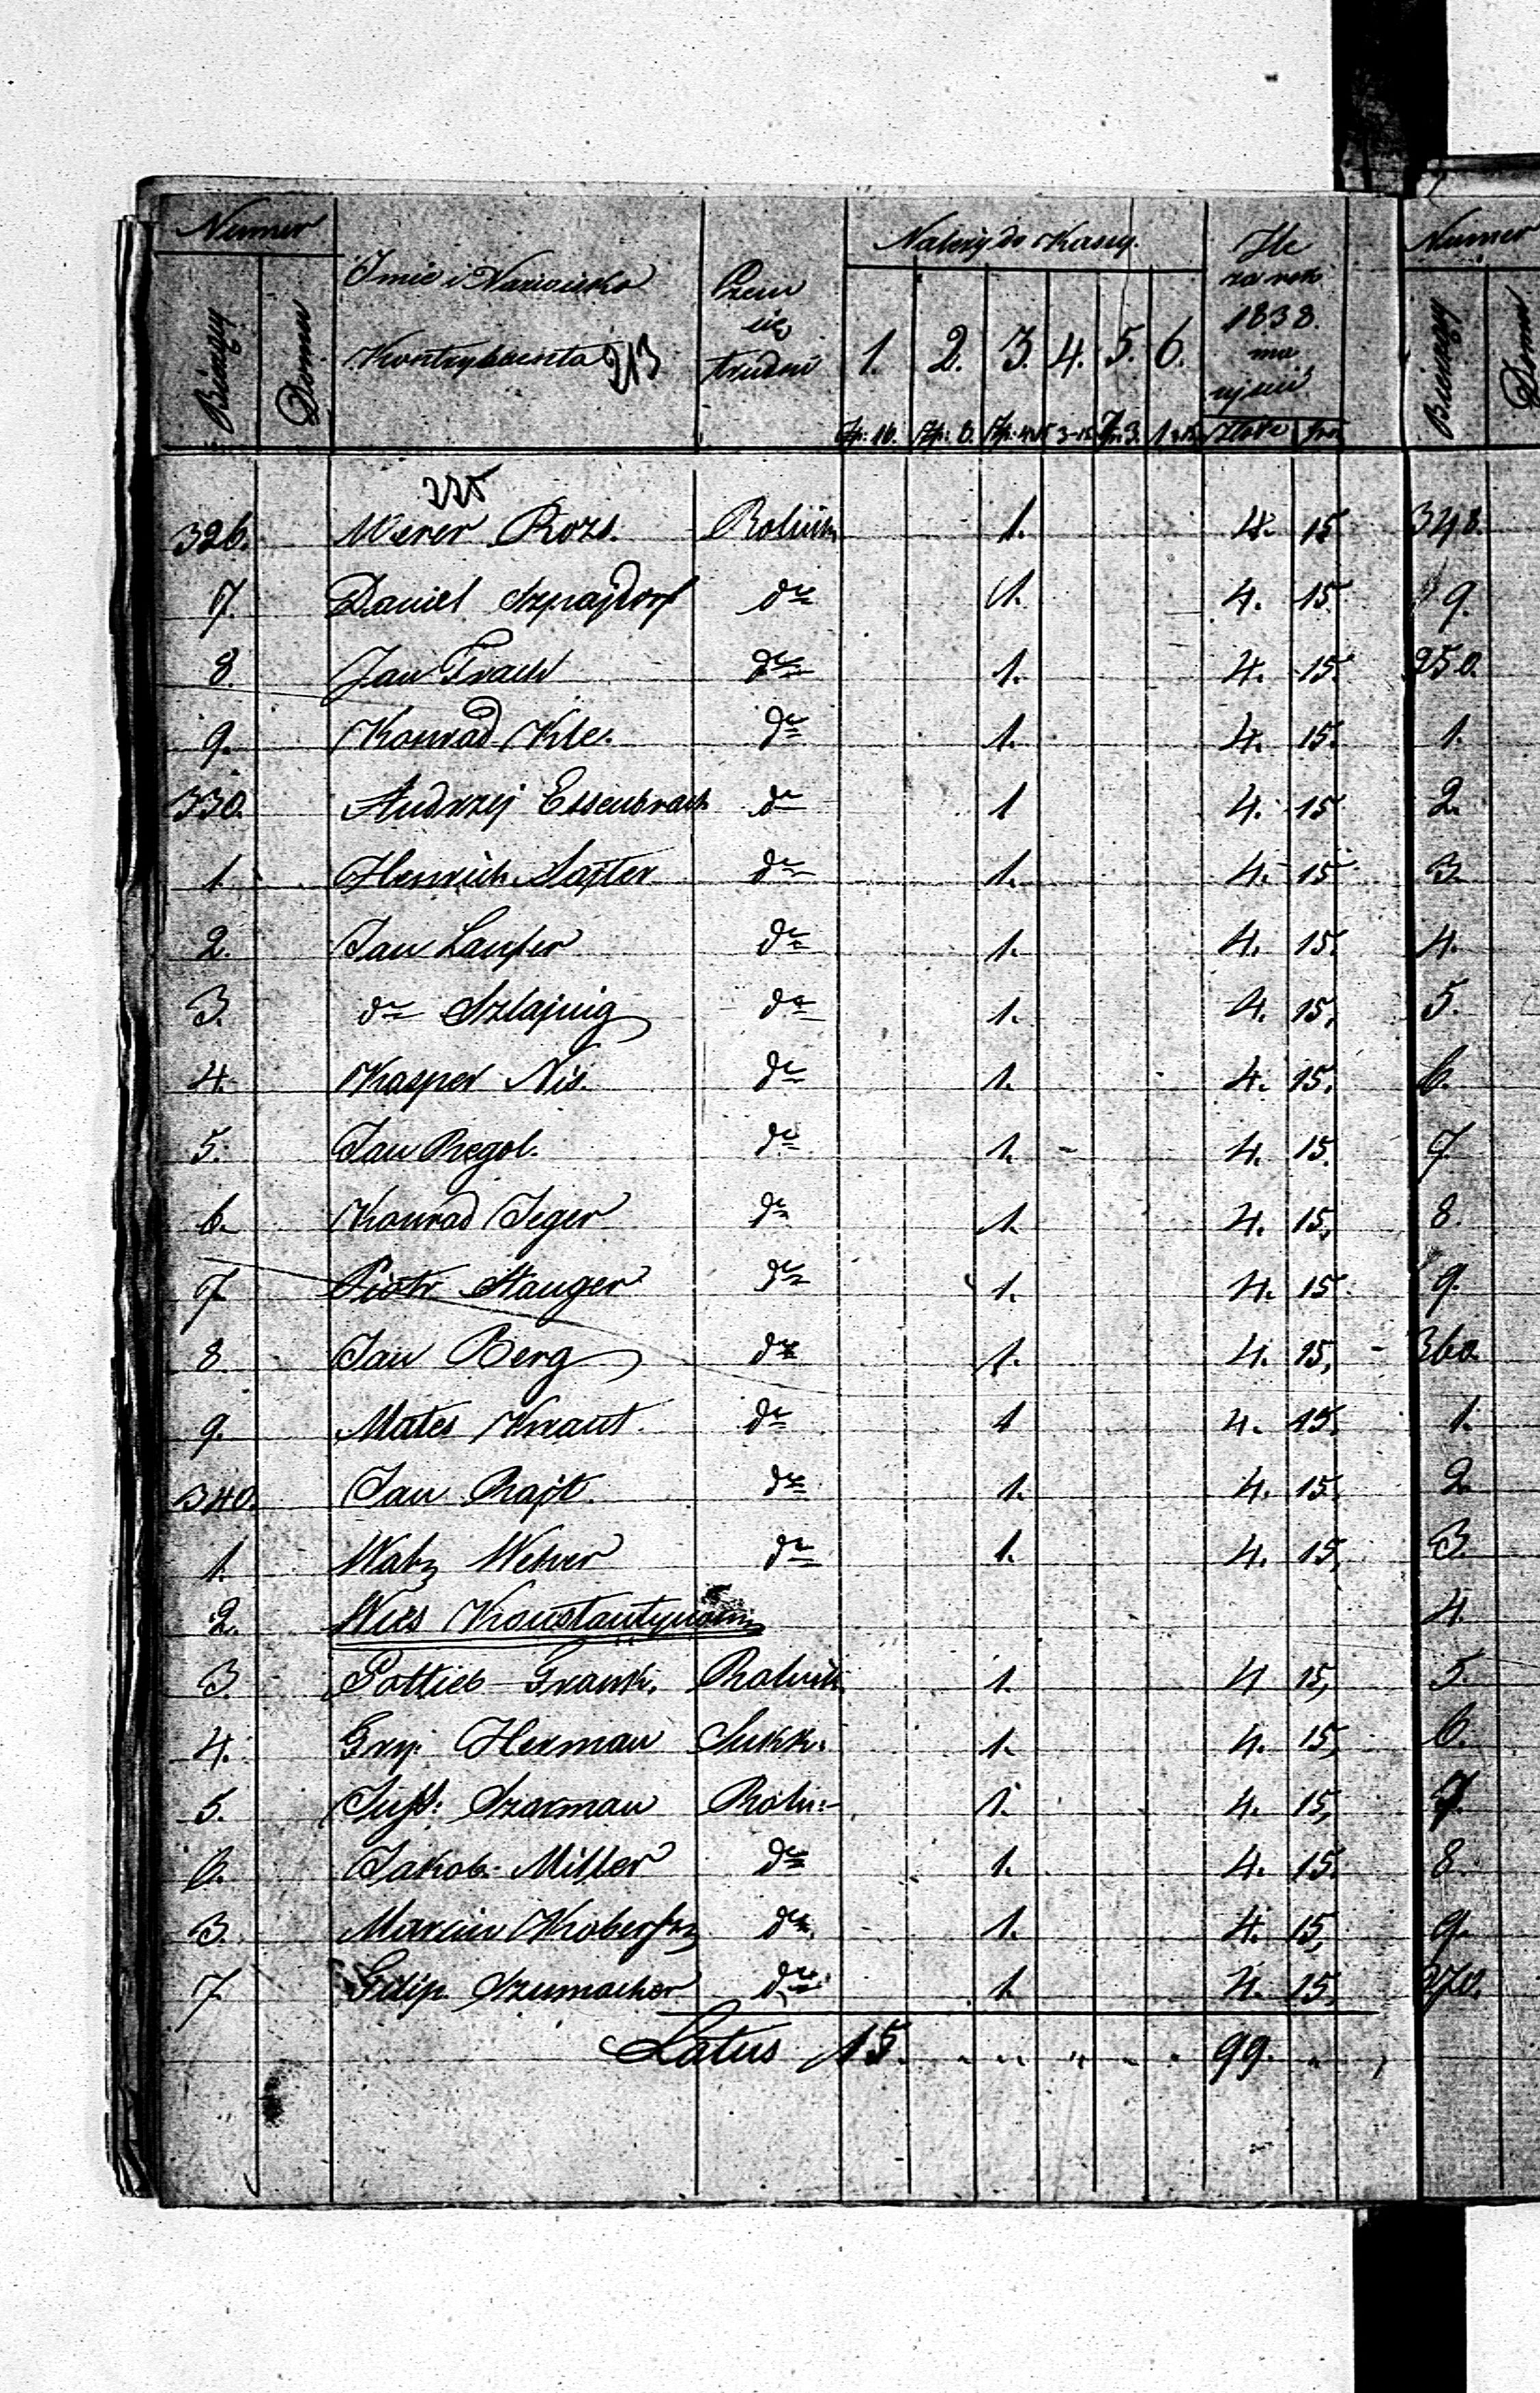 Numer
Bieżący Domu
Imie i Nazwisko
Kontrybuenta 213
Czem
się
trudni
Należy do Kassy.
1. 2. 3. 4. 5. 6.
Ile
za rok
1838.
ma
Numer
Bieżący Domu
225
326. Werer Rozs. Rolnik 1. 4. 15 348.
7. Daniel Szpajdorf do 1. 4. 15. 9.
8. Jan Frach do 1. 4. 15. 350.
9. Konrad Kle. do 1. 4. 15. 1.
330. Andrzej Essenbrach do 1 4. 15 2.
1. Henrich Sajter do 1. 4. 15 3.
2. Jan Laufer do 1. 4. 15. 4.
3. do Szlajnig do 1. 4. 15. 5.
4. Kasper Nis. do 1. 4. 15. 6.
5. Jan Regol. do 1. - 4. 15. 7
6. Konrad Jeger do 1. 4. 15. 8.
7 Piotr Stanger do 1. 4. 15. 9.
8 Jan Berg do 1. 4. 15, 360.
9. Mates Kraut. do 1 4. 15. 1.
340. Jan Rajt. do 1. 4. 15. 2
1. Watz Weber do 1. 4. 15, 3.
2. Wieś Konstantynow 4.
3. Gottlieb Frank. Rolnik 1. 4 15, 5.
4. Gryj. Herman Sukk. 1. 4. 15, 6.
5. Just: Szarman Roln:- 1. 4. 15, 7.
6. Jakob. Miller do 1. 4. 15. 8.
3. Marcin do 1. 4. 15, 9.
7. Filip. Szumacher do 1. 4. 15, 370.
Latus 15. 99.